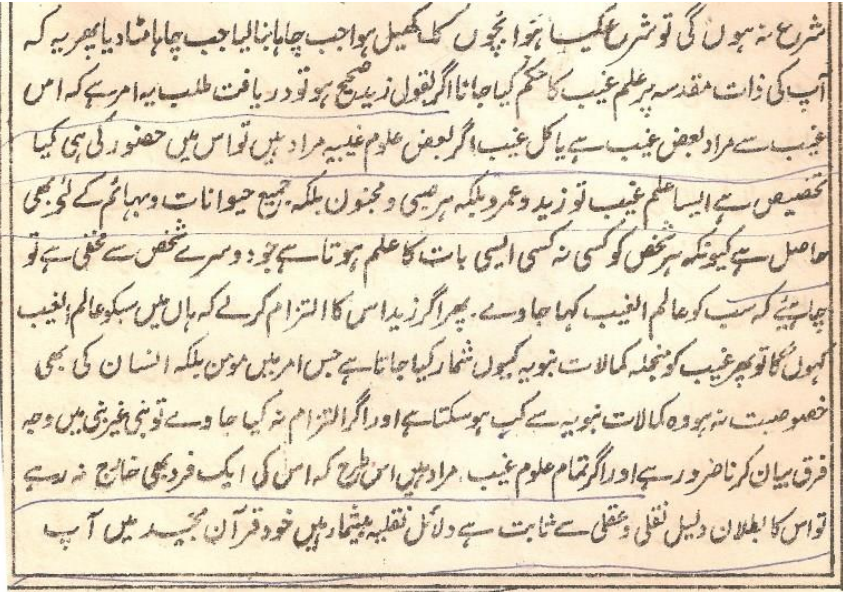 شرع نہ ہوں گی تو شرع کیا ہوا بچوں کا کھیل ہوا جب چاہا بنالیا جب چاہا مٹا دیا پھر یہ کہ
آپ کی ذات مقدسہ پر علم غیب کا حکم کیا جانا اگر بقول زید صحیح ہو تو دریافت طلب یہ امر ہے کہ اس
غیب سے مراد بعض غیب ہے یا کل غیب اگر بعض علوم غیبیہ مراد ہیں تو اس میں حضور کی ہی کیا
تخصیص ہے ایسا علم غیب تو زید و عمرو بلکہ ہر صبی و مجنون بلکہ جمیع حیوانات و بہائم کے لئے بھی
حاصل ہے کیونکہ ہر شخص کو کسی نہ کسی ایسی بات کا علم ہوتا ہے جو دوسرے شخص سے مخفی ہے تو
چاہئیے کہ سب کو عالم الغیب کہا جاوے۔ پھر اگر زید اس کا التزام کرلے کہ ہاں میں سبکو عالم الغیب
کہوں گا تو پھر غیب کو منجملہ کمالات نبویہ کیوں شمار کیا جاتا ہے جس امر میں مومن بلکہ انسان کی بھی
خصوصیت نہ ہو وہ کمالات نبویہ سے کب ہوسکتا ہے اور اگر التزام نہ کیا جاوے تو نبی غیر نبی میں وجہ
فرق بیان کرنا ضرور ہے اور اگر تمام علوم غیب مراد ہیں اس طرح کہ اس کی ایک فرد بھی خارج نہ رہے
تو اس کا بطلان دلیل نقلی و عقلی سے ثابت ہے دلائل نقلیہ بیشمار ہیں خود قرآن مجید میں آپ